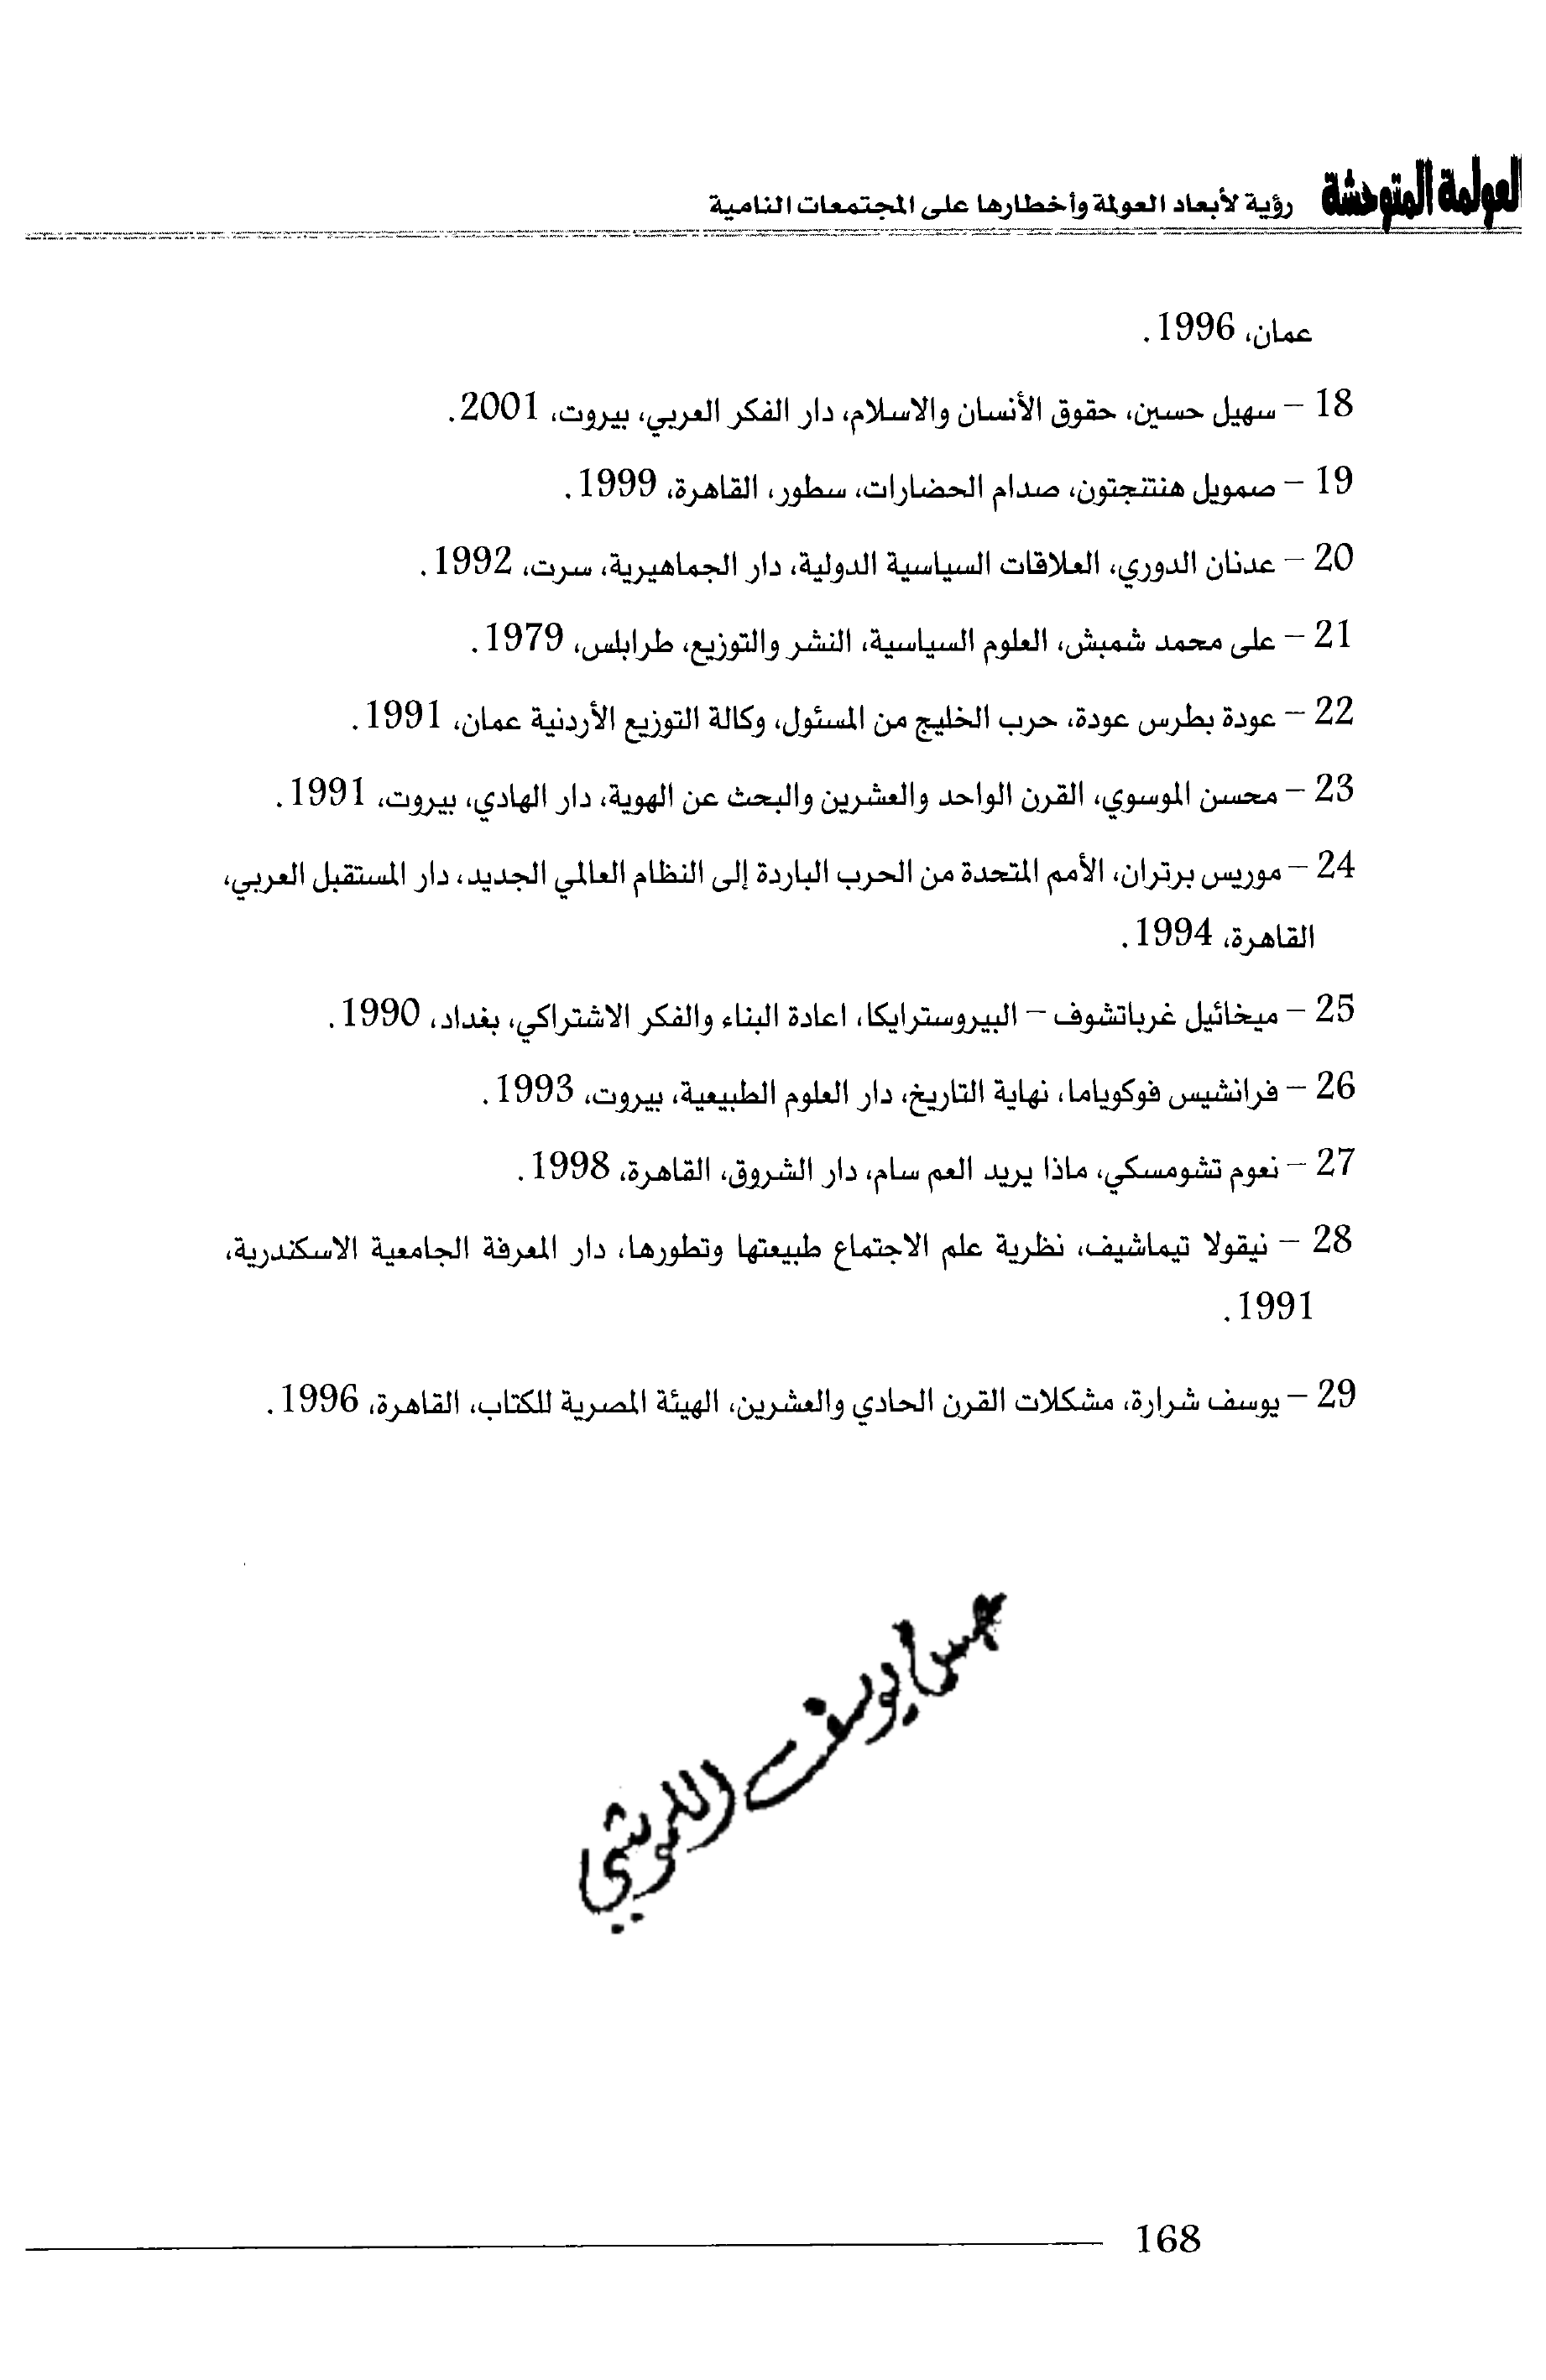 العولمة المتوحشة رؤية لأبعاد العولمة وأخطارها على المجتمعات النامية
عمان، 1996.
18 - سهيل حسين، حقوق الأنسان والاسلام، دار الفكر العربي، بيروت، 2001.
19 - صمويل هنتنجتون، صدام الحضارات، سطور، القاهرة، 1999.
20 - عدنان الدوري، العلاقات السياسية الدولية، دار الجماهيرية، سرت، 1992.
21 - على محمد شمبش، العلوم السياسية، النشر والتوزيع، طرابلس، 1979.
22 - عودة بطرس عودة، حرب الخليج من المسئول، وكالة التوزيع الأردنية عمان، 1991.
23 - محسن الموسوي، القرن الواحد والعشرين والبحث عن الهوية، دار الهادي، بيروت، 1991.
24 - موريس برتران، الأمم المتحدة من الحرب الباردة إلى النظام العالمي الجديد، دار المستقبل العربي،
القاهرة، 1994.
25 - ميخائيل غرباتشوف - البيروسترايكا، اعادة البناء والفكر الاشتراكي، بغداد، 1990.
26 - فرانشيس فوكوياما، نهاية التاريخ، دار العلوم الطبيعية، بيروت، 1993.
27 - نعوم تشومسكي، ماذا يريد العم سام، دار الشروق، القاهرة، 1998.
28 - نيقولا تيماشيف، نظرية علم الاجتماع طبيعتها وتطورها، دار المعرفة الجامعية الاسكندرية،
1991.
29 - يوسف شرارة، مشكلات القرن الحادي والعشرين، الهيئة المصرية للكتاب، القاهرة، 1996.
يوسف
168